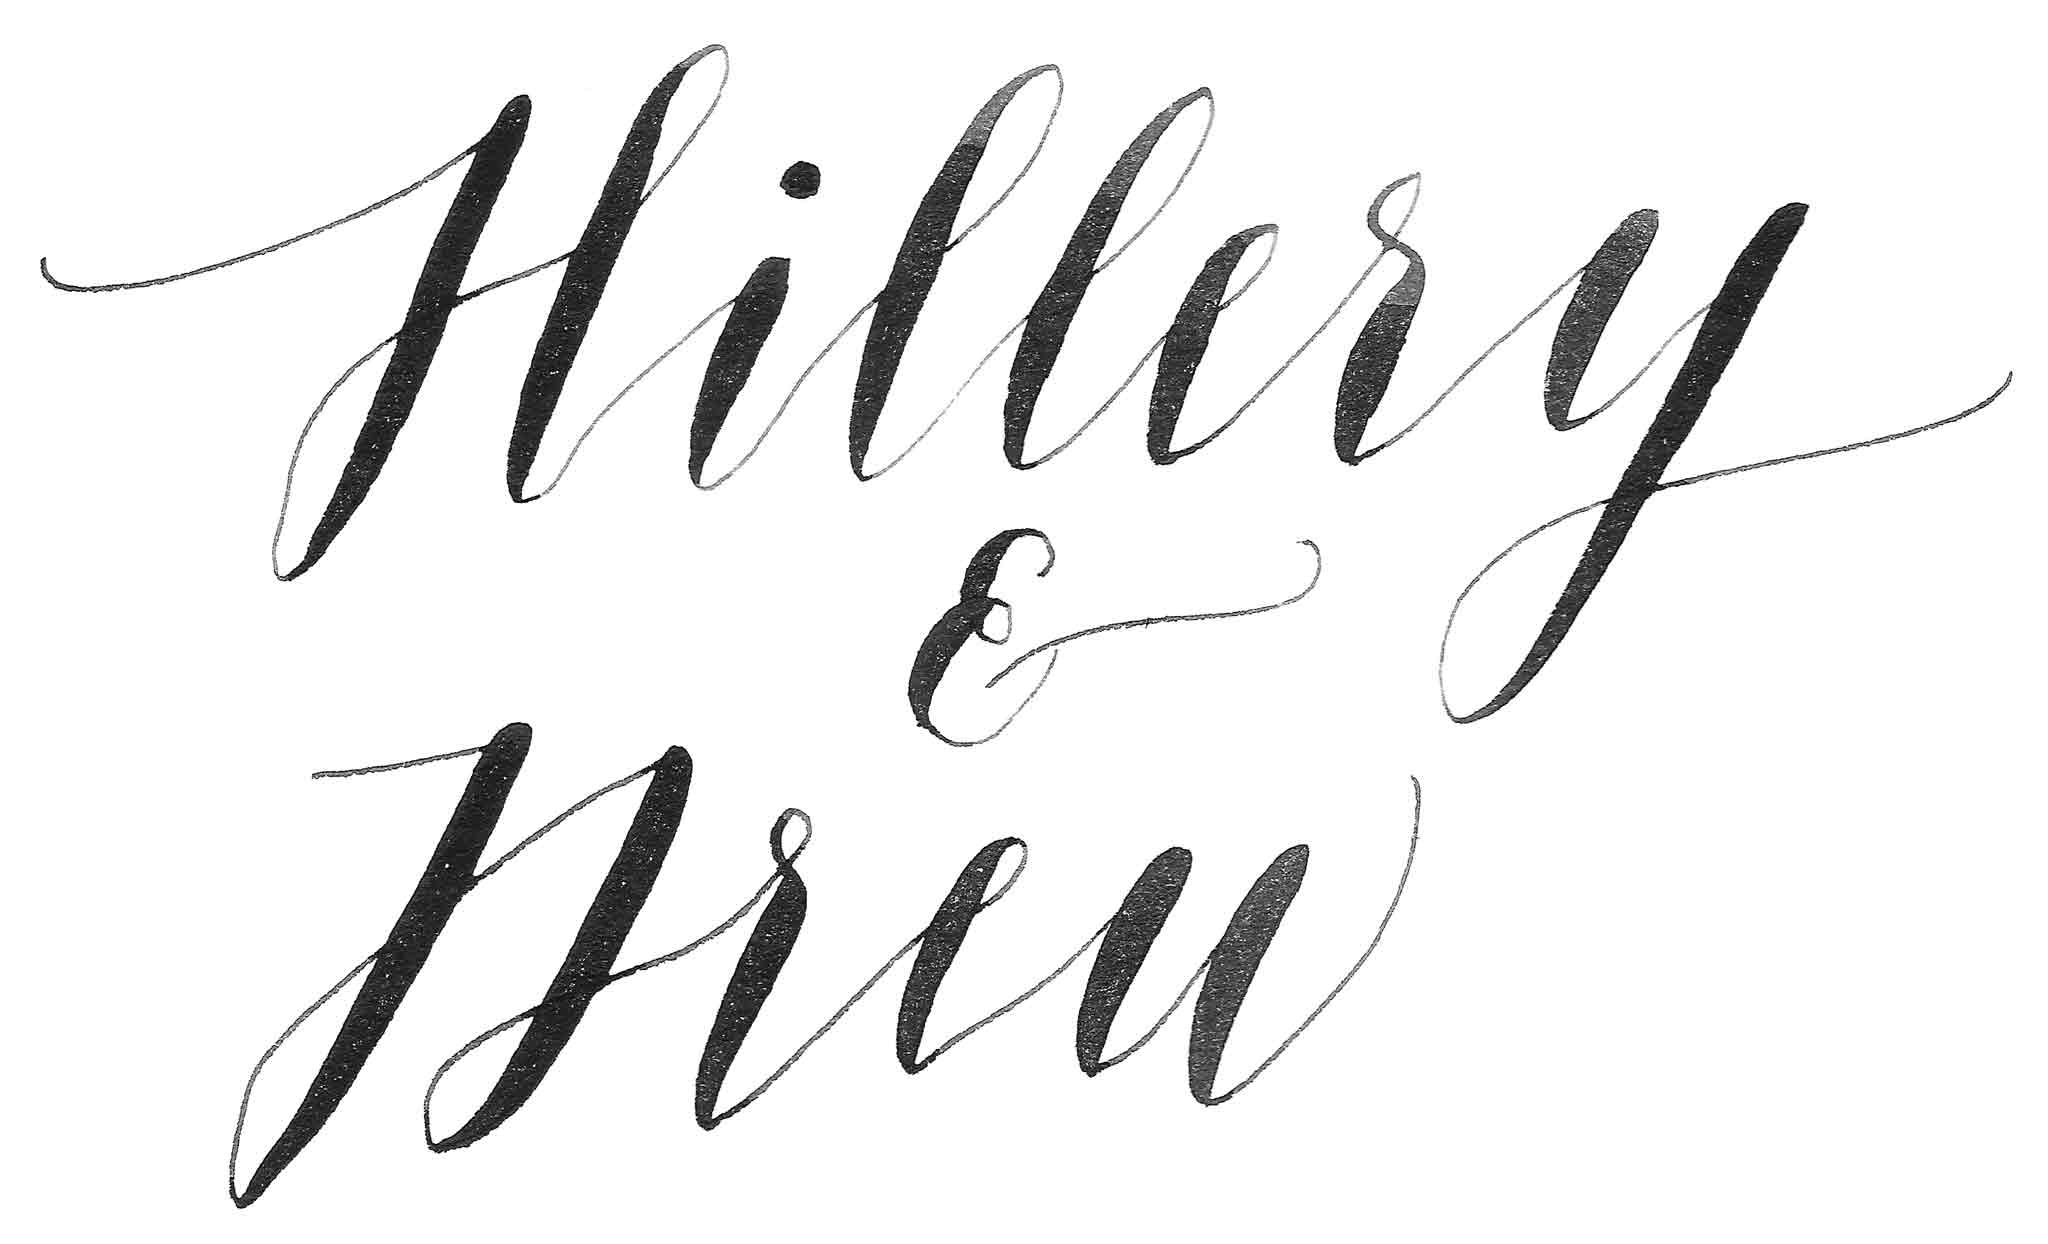 Hillery
&
Drew